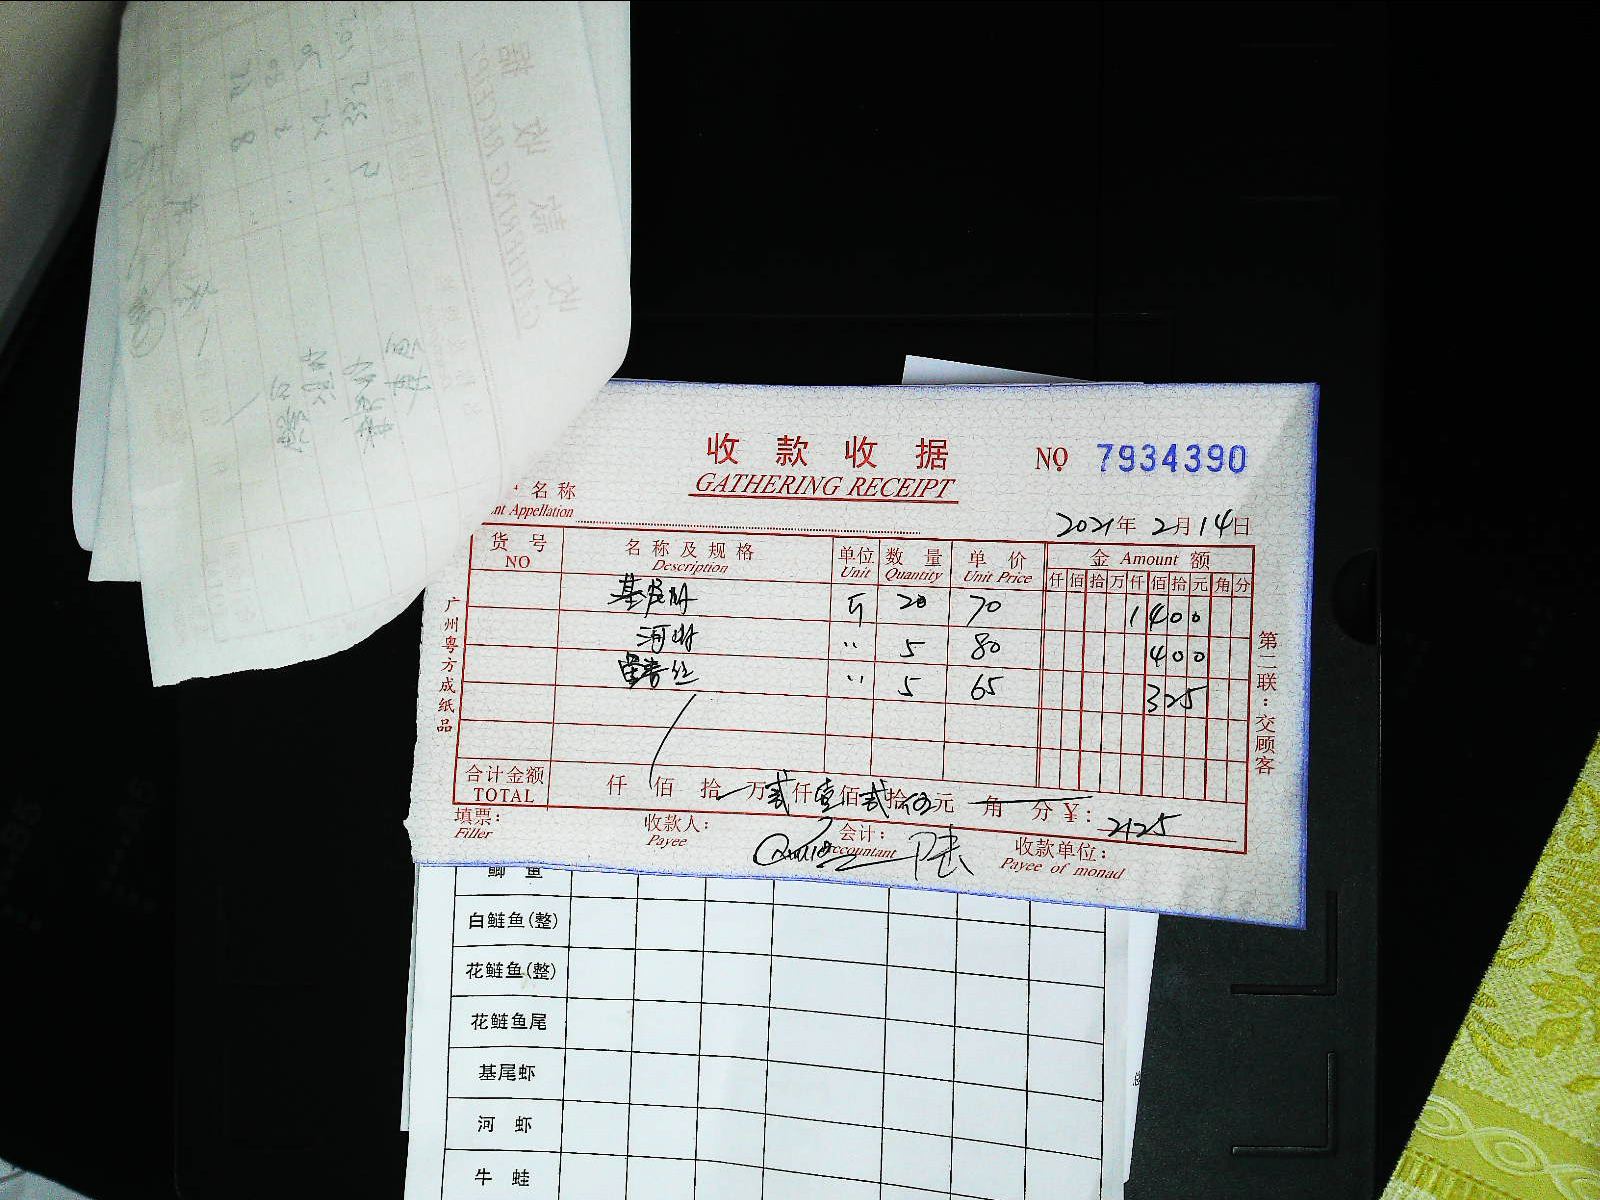 收款收据
GATHERING RECEIPT
NO 7934390
名称
nt Appellation
2021年 2月14日
货号 名称及规格 单位 数量 单价 金 Amount 额
NO Description Unit Quantity Unit Price 仟佰拾万仟佰拾元角分
基尾虾 斤 20 70 1400
河虾 〃 5 80 400
〃 5 65 325
合计金额 仟 佰 拾 万 贰仟壹佰贰拾伍元 角 分 ¥: 2125
TOTAL
填票: 收款人: 会计: 收款单位:
Filler Payee Accountant Payee of monad
广州粤方成纸品
第二联:交顾客
鲫鱼
白鲢鱼(整)
花鲢鱼(整)
花鲢鱼尾
基尾虾
河虾
牛蛙